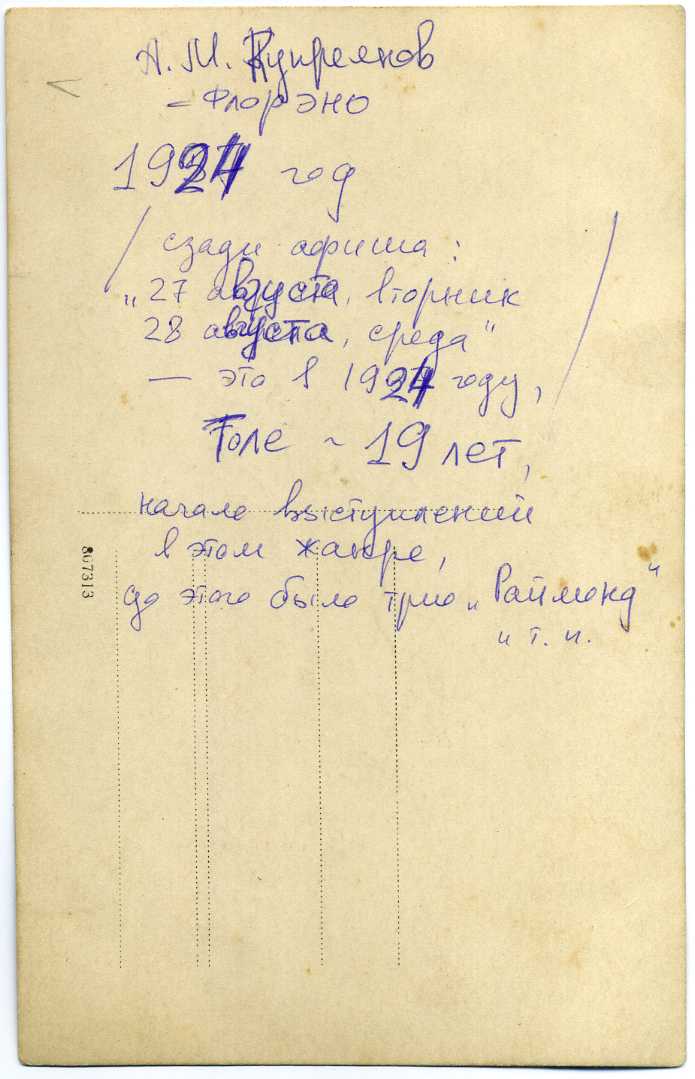 А. М. Купреянов
= Флорэно
1924 год
/ сзади афиша: /
„27 августа, вторник
28 августа, среда"
— это в 1924 году,
Толе ~ 19 лет,
начало выступлений
в этом жанре,
до этого было трио „Раймонд"
и т. п.
807313